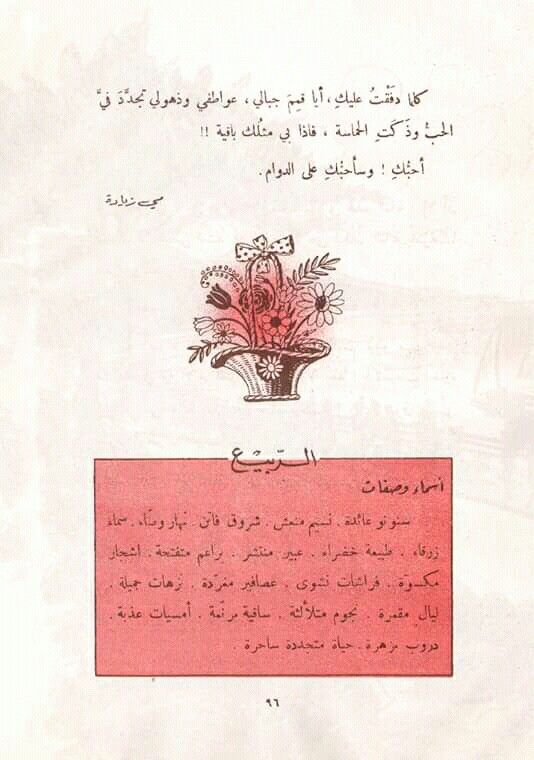 كلما دفَقْتُ عليكِ، أيا قممَ جبالي، عواطفي وذهولي تجدَّدَ فيَّ
الحبُّ وذَكَتِ الحماسة، فاذا بي مثلُك باقية !!
أحبُّكِ ! وسأحبُّكِ على الدوام.
مي زيادة
الربيع
أسماء وصفات
سنونو عائدة. نسيم منعش. شروق فاتن. نهار وضّاء. سماء
زرقاء. طبيعة خضراء. عبير منتشر. براعم متفتحة. اشجار
مكسوة. فراشات نشوى. عصافير مغرّدة. نزهات جميلة.
ليال مقمرة. نجوم متلألئة. ساقية مرنمة. أمسيات عذبة.
دروب مزهرة. حياة متجددة ساحرة.
٩٦